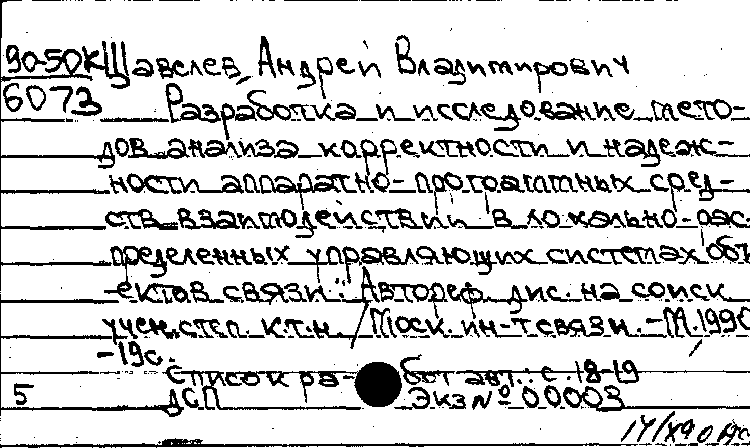 90-50к Щавелев, Андрей Владимирович
6073 Разработка и исследование мето-
дов анализа корректности и надеж-
ности аппаратно-программных сред-
ств взаимодействий в локально-рас-
пределенных управляющих системах объ
-ектов связи: Автореф. дис. на соиск
учен. степ. к.т.н. / Моск. ин-т связи. - М. 1990
-19с.
Список ра- бот авт.: с. 18-19
5 ДСП Экз № 00003